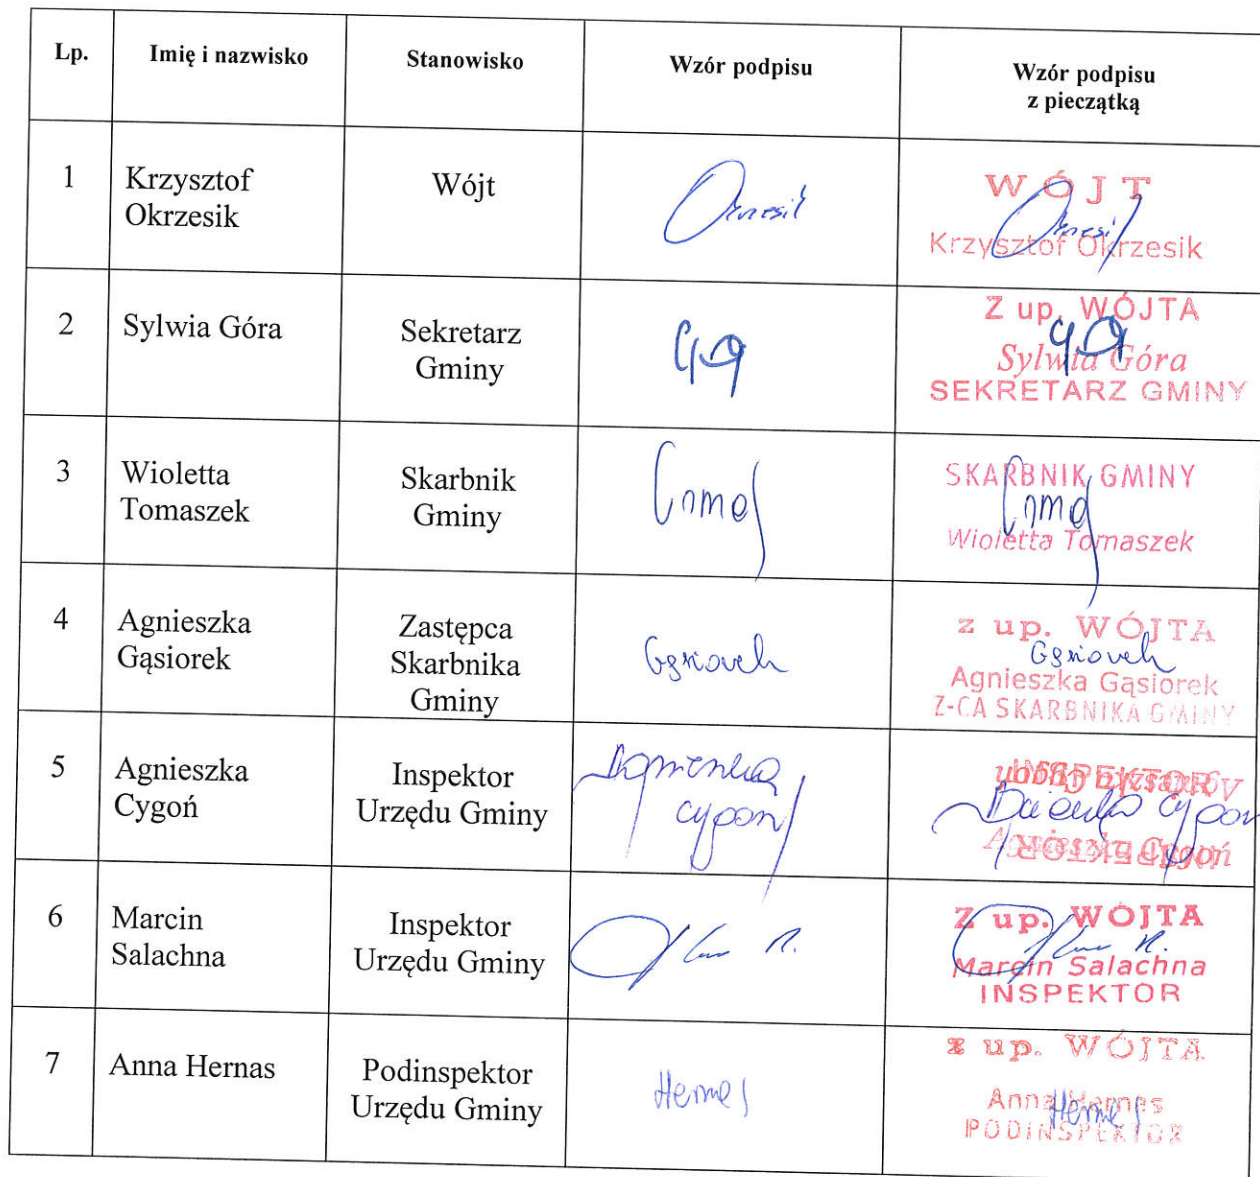 Lp.
Imię i nazwisko
Stanowisko
Wzór podpisu
Wzór podpisu
z pieczątką
1
Krzysztof
Okrzesik
Wójt
WÓJT
Krzysztof Okrzesik
2
Sylwia Góra
Sekretarz
Gminy
Z up. WÓJTA
Sylwia Góra
SEKRETARZ GMINY
3
Wioletta
Tomaszek
Skarbnik
Gminy
SKARBNIK GMINY
Wioletta Tomaszek
4
Agnieszka
Gąsiorek
Zastępca
Skarbnika
Gminy
Gąsiorek
z up. WÓJTA
Gąsiorek
Agnieszka Gąsiorek
Z-CA SKARBNIKA GMINY
5
Agnieszka
Cygoń
Inspektor
Urzędu Gminy
Agnieszka
Cygoń
INSPEKTOR
Agnieszka Cygoń
6
Marcin
Salachna
Inspektor
Urzędu Gminy
Z up. WÓJTA
Marcin Salachna
INSPEKTOR
7
Anna Hernas
Podinspektor
Urzędu Gminy
Hernas
z up. WÓJTA
Anna Hernas
PODINSPEKTOR